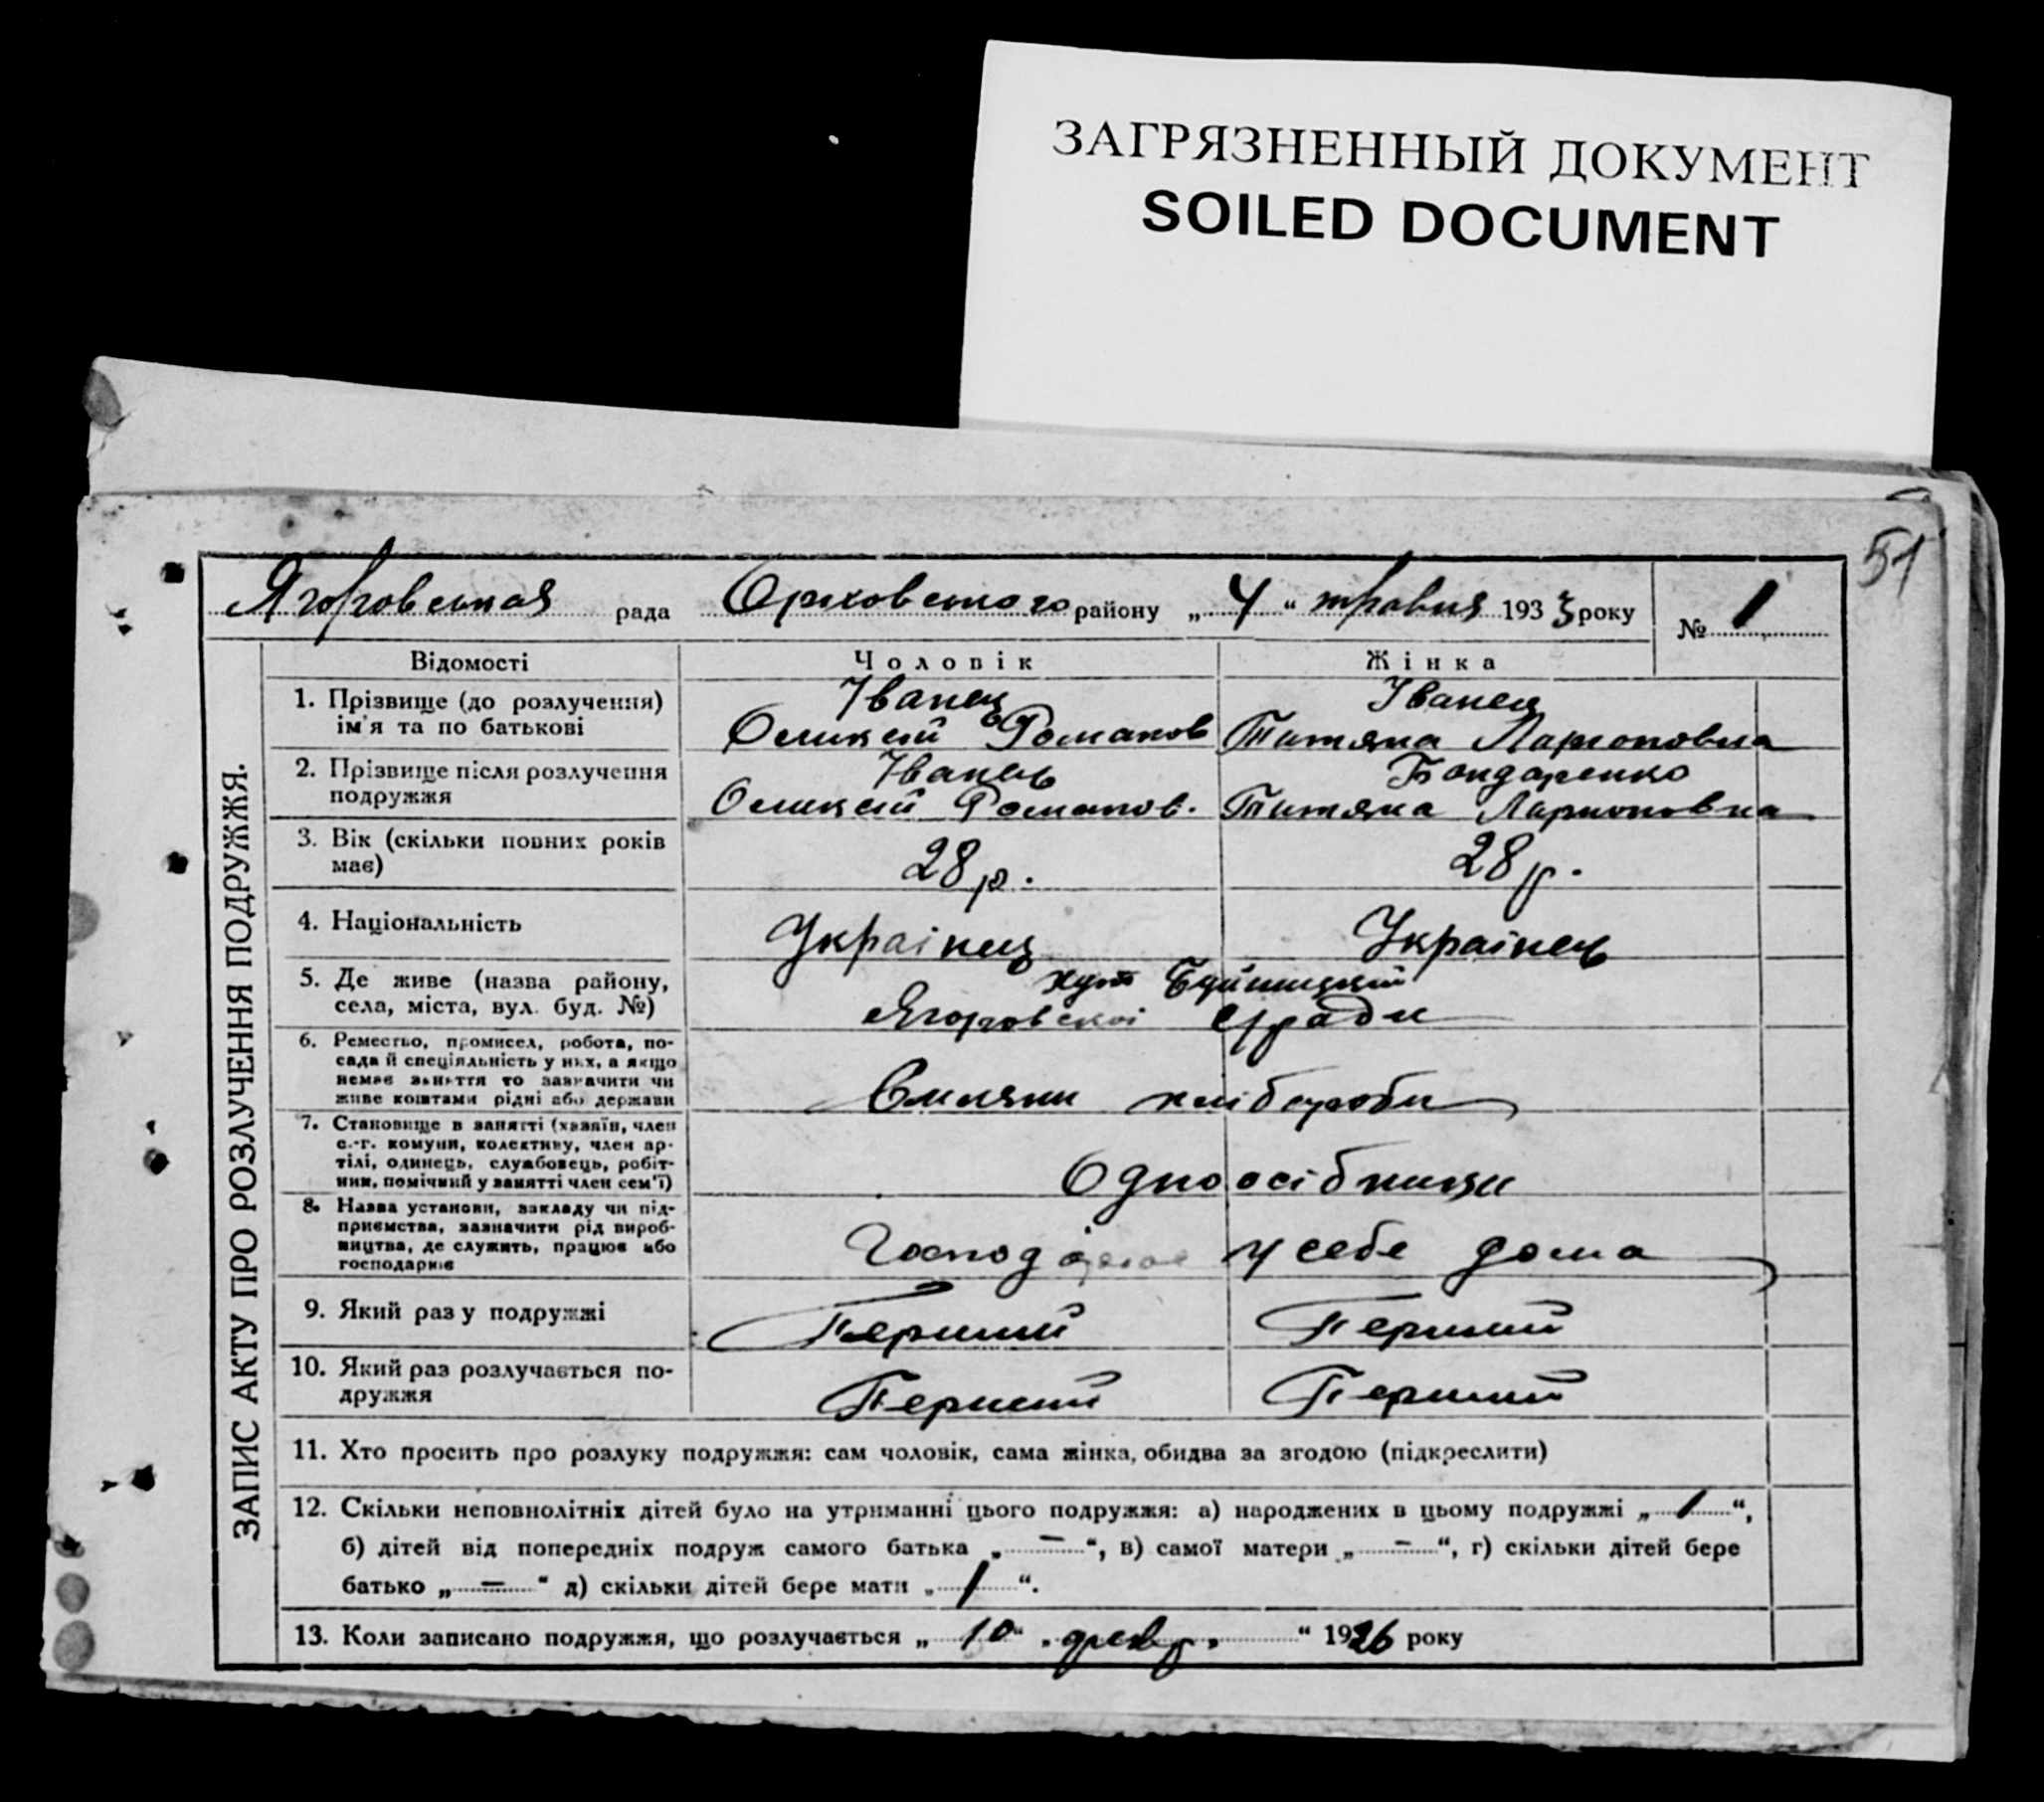 ЗАГРЯЗНЕННЫЙ ДОКУМЕНТ
SOILED DOCUMENT
51
Ягорговськая рада Оріховського району „ 4 “ травня 1933 року № 1
ЗАПИС АКТУ ПРО РОЗЛУЧЕННЯ ПОДРУЖЖЯ.
Відомості Чоловік Жінка
1. Прізвище (до розлучення) Іванец Іванец
ім'я та по батькові Оликсій Романов Титяна Ларионовна
2. Прізвище після розлучення Іванець Бондаренко
подружжя Оликсій Романов. Титяна Ларионовна
3. Вік (скільки повних років
має) 28 р. 28 р.
4. Національність Українец Українець
5. Де живе (назва району, хут
села, міста, вул. буд. №) сради
6. Ремество, промисел, робота, по-
сада й спеціяльність у них, а якщо
немає заняття то зазначити чи
живе коштами рідні або держави хлібороби
7. Становище в занятті (хазяїн, член
с.-г. комуни, колективу, член ар-
тілі, одинець, службовець, робіт-
ник, помічний у занятті член сем'ї) Одноосібници
8. Назва установи, закладу чи під-
приємства, зазначити рід вироб-
ництва, де служить, працює або
господарює у себе дома
9. Який раз у подружжі Перший Перший
10. Який раз розлучається по-
дружжя Перший Перший
11. Хто просить про розлуку подружжя: сам чоловік, сама жінка, обидва за згодою (підкреслити)
12. Скільки неповнолітніх дітей було на утриманні цього подружжя: а) народжених в цьому подружжі „ 1 “,
б) дітей від попередніх подруж самого батька „ – “, в) самої матери „ – “, г) скільки дітей бере
батько „ – “ д) скільки дітей бере мати „ 1 “.
13. Коли записано подружжя, що розлучається „ 10 “ „ февр. “ 1926 року